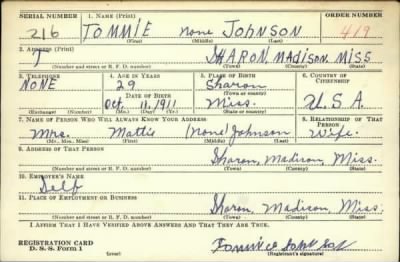 SERIAL NUMBER 1. NAME (Print) ORDER NUMBER
216 TOMMIE none JOHNSON 419
(First) (Middle) (Last)
2. ADDRESS (Print)
SHARON, MADISON, MISS
(Number and street or R. F. D. number) (Town) (County) (State)
3. TELEPHONE 4. AGE IN YEARS 5. PLACE OF BIRTH 6. COUNTRY OF CITIZENSHIP
NONE 29 Sharon
DATE OF BIRTH (Town or county)
Oct. 11, 1911 Miss. U.S.A.
(Exchange) (Number) (Mo.) (Day) (Yr.) (State or country)
7. NAME OF PERSON WHO WILL ALWAYS KNOW YOUR ADDRESS 8. RELATIONSHIP OF THAT PERSON
Mrs. Mattie (None) Johnson Wife.
(Mr., Mrs., Miss) (First) (Middle) (Last)
9. ADDRESS OF THAT PERSON
Sharon, Madison, Miss.
(Number and street or R. F. D. number) (Town) (County) (State)
10. EMPLOYER'S NAME
Self
11. PLACE OF EMPLOYMENT OR BUSINESS
Sharon, Madison, Miss.
(Number and street or R. F. D. number) (Town) (County) (State)
I AFFIRM THAT I HAVE VERIFIED ABOVE ANSWERS AND THAT THEY ARE TRUE.
REGISTRATION CARD
D. S. S. Form 1 (over) (Registrant's signature)